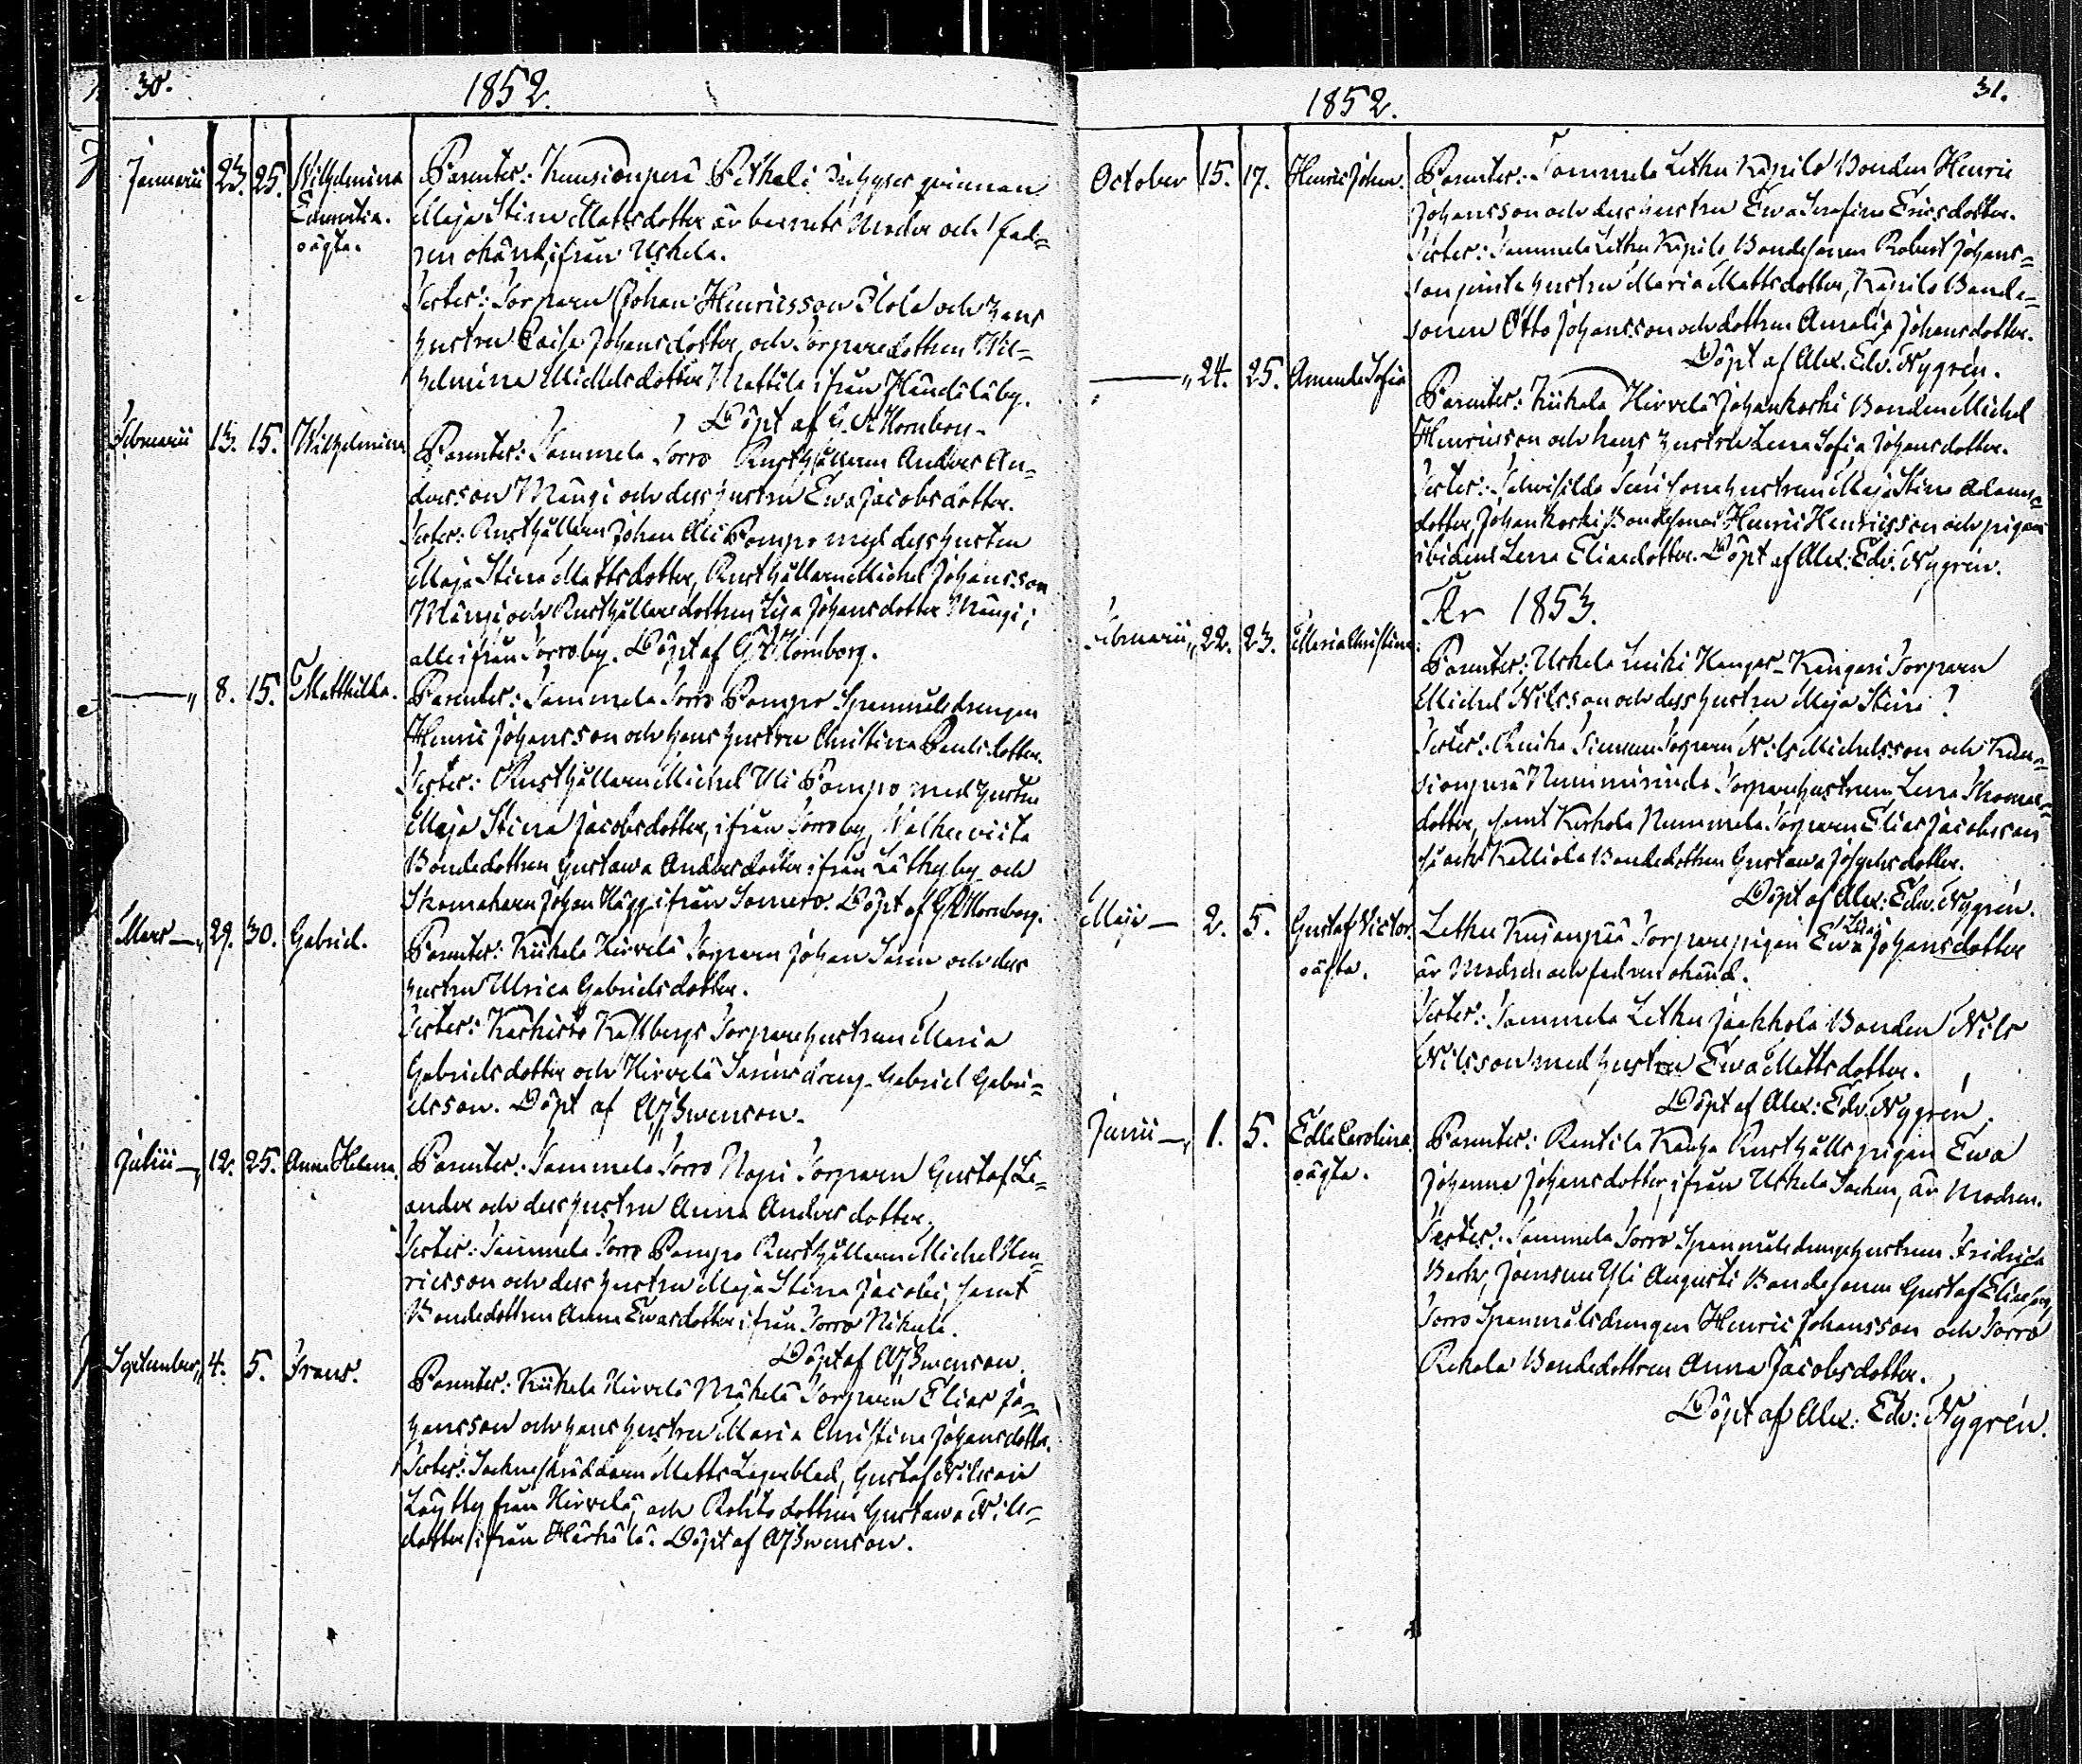 30.
1852.
Januarii 23. 25. Wilhelmina
oägta.
Parenter: Kuusionperä Pitkäli Inhyses qvinnan
Maja Stina Mattsdotter är barnets Moder och fad-
ren okänd, ifrån Uskela.
Testes: Torparen Johan Henricsson Alola och hans
hustru Caisa Johansdotter, och Torparedottren Wil-
helmina Michelsdotter Mattila ifrån Häntäläby.
Döpt af G. A. Hornborg.
Februarii 13. 15. Wilhelmina
Parenter: Sammelo Torro Rusthållaren Anders An-
dersson Mängi och dess hustru Ewa Jacobsdotter.
Testes: Rusthållaren Johan Ali Pompo med dess hustru
Maja Stina Mattsdotter, Rusthållaren Michel Johansson
Mängi och Rusthållaredottren Lisa Johansdotter Mängi;
alle ifrån Torroby. Döpt af G A Hornborg.
— „ 8. 15. Matthilda.
Parenter: Sammelo Torro Pompo Spanmålsdrengen
Henric Johansson och hans hustru Christina Paulsdotter.
Testes: Rusthållaren Michel Uli Pompo med hustru
Maja Stina Jacobsdotter, ifrån Torroby,
Bondedottren Gustava Andersdotter ifrån Läthyby och
Skomakaren Johan Hägg ifrån Somero. Döpt af G A Hornborg.
Mars — „ 29. 30. Gabriel.
Parenter: Kiikala Hirvelä Torparen Johan Sarin och dess
hustru Ulrica Gabrielsdotter.
Testes: Karkisto Kallbergs Torparehustrun Maria
Gabrielsdotter och Hirvelä Sarins dreng Gabriel Gabri-
elsson. Döpt af A J Swenson.
Julii — „ 12. 25. Anna Helena.
Parenter: Sammelo Torro Napi Torparen Gustaf Le-
ander och dess hustru Anna Andersdotter.
Testes: Sammelo Torro Pompo Rusthållaren Michel Hen-
ricsson och dess hustru Maja Stina Jacobs, samt
Bondedottren Anna Ewasdotter ifrån Torro Nikula.
Döpt af A J Swenson.
September „ 4. 5. Frans.
Parenter: Kiikala Hirvelä Mäkelä Torparen Elias Jo-
hansson och hans hustru Maria Christina Johansdotter.
Testes: Sockneskräddaren Matts Lagerblad, Gustaf Nilsson
Löytty från Hirvelä, och Rotetsdottren Gustava Nils-
dotter ifrån Härkälä. Döpt af A J Swenson.
1852.
31.
October 15. 17. Henric Johan.
Parenter: Sammelo Letku Käpilä Bonden Henric
Johansson och dess hustru Ewa Serafina Ericsdotter.
Testes: Sammelo Letku Käpilä Bondesonen Robert Johans-
son jemte hustru Maria Mattsdotter, Käpilä Bonde-
sonen Otto Johansson och dottren Amalia Johansdotter.
Döpt af Alex. Edv. Nygrén.
— „ 24. 25. Amanda Sofia
Parenter: Kiikala Hirvelä Johankoski Bonden Michel
Henricsson och hans hustru Lena Sofia Johansdotter.
Testes: sonehustrun Maja Stina Adams-
dotter, Johankoski Bondesonen Henric Henricsson och pigan
ibidem Lena Eliaedotter. Döpt af Alex: Edv. Nygrén.
År 1853.
Februarii „ 22. 23. Maria Christina.
Parenter: Uskela Kangas-Kangari Torparen
Michel Nilsson och dess hustru Maja Stina ?
Testes: Torparen Nils Michelsson och Kuu-
sionperä Torparehustrun Lena Thomas-
dotter, samt Kerkola Nummela Torparen Elias Jacobsson
och Kalliola Bondedottren Gustava Josephsdotter.
Döpt af Alex: Edv. Nygrén.
Maji — 2. 5. Gustaf Victor.
oägta.
Letku Kusanpää Torparepigan Ewa Lisa Johansdotter
är Modren och fadren okänd.
Testes: Sammelo Letku Jaakkola Bonden Nils
Nilsson med hustru Ewa Mattsdotter.
Döpt af Alex: Edv. Nygrén.
Junii — „ 1. 5. Edla Carolina.
oägta.
Parenter: Rantila Rusthålls pigan Ewa
Johanna Johansdotter, ifrån Uskela Socken, är Modren.
Testes: Sammelo Torro Spanmålsdrengehustrun Fredrica
Berk, Joensuu Yli Augusti Bondesonen Gustaf Eliasson,
Torro Spanmålsdrengen Henric Johansson och Torro
Rekola Bondedottren Anna Jacobsdotter.
Döpt af Alex: Edv: Nygrén.